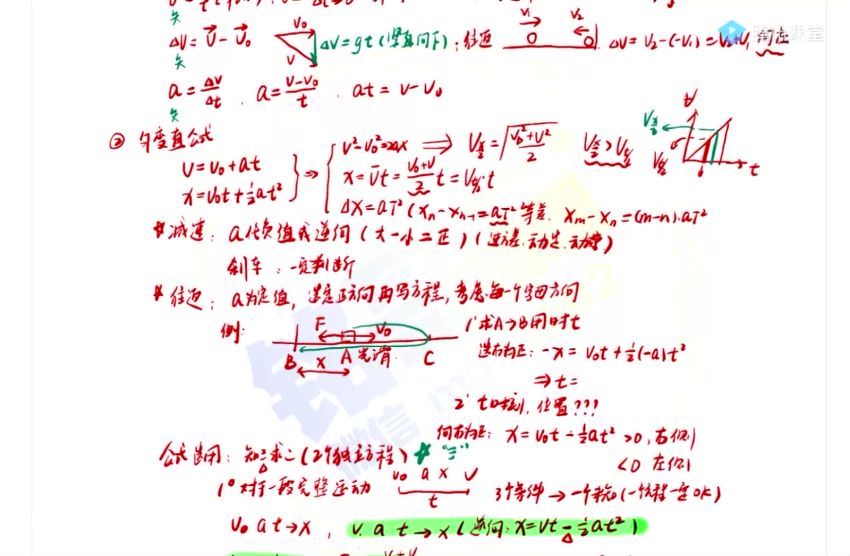 矢
ΔV = V - V₀ V₀ V ΔV = gt (竖直向下); 往返 V₁ V₂ ΔV = V₂-(-V₁) = V₂+V₁ 向左
矢
a = ΔV/Δt . a = (V-V₀)/t . at = V-V₀
矢
② 匀变直公式
V = V₀ + at
x = V₀t + ½at²
V²-V₀²=2ax ⇒ Vx/2 = √((V₀²+V²)/2) Vx/2 > Vt/2
x = V̄t = (V₀+V)/2 t = Vt/2·t
ΔX = aT² (xn - xn-1 = aT² 等差. Xm - Xn = (m-n)·aT²
V t
* 减速: a代负值或逆向 (大-小=正)
刹车: 一定判断
* 往返: a为定值, 选定正方向再写方程, 考虑每一个字母方向
例: F V₀
B x A 光滑 C
1° 求A→B用时t
选右为正: -x = V₀t + ½(-a)t²
⇒ t =
2° t时刻, 位置???
向右为正: x = V₀t - ½at² >0, 右侧
<0 左侧
公式选用: 知三求二 (2个独立方程) * "三"
1° 对于一段完整运动 V₀ a x V t 3个条件 → 一个未知 (一个方程一定OK)
V₀ a t → x , V. a t → x (逆向: x = Vt - ½at²)